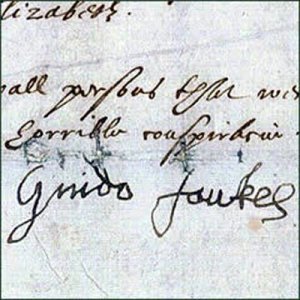 Elizabeth.
all persons that wer
horrible conspiracie.
Guido fawkes